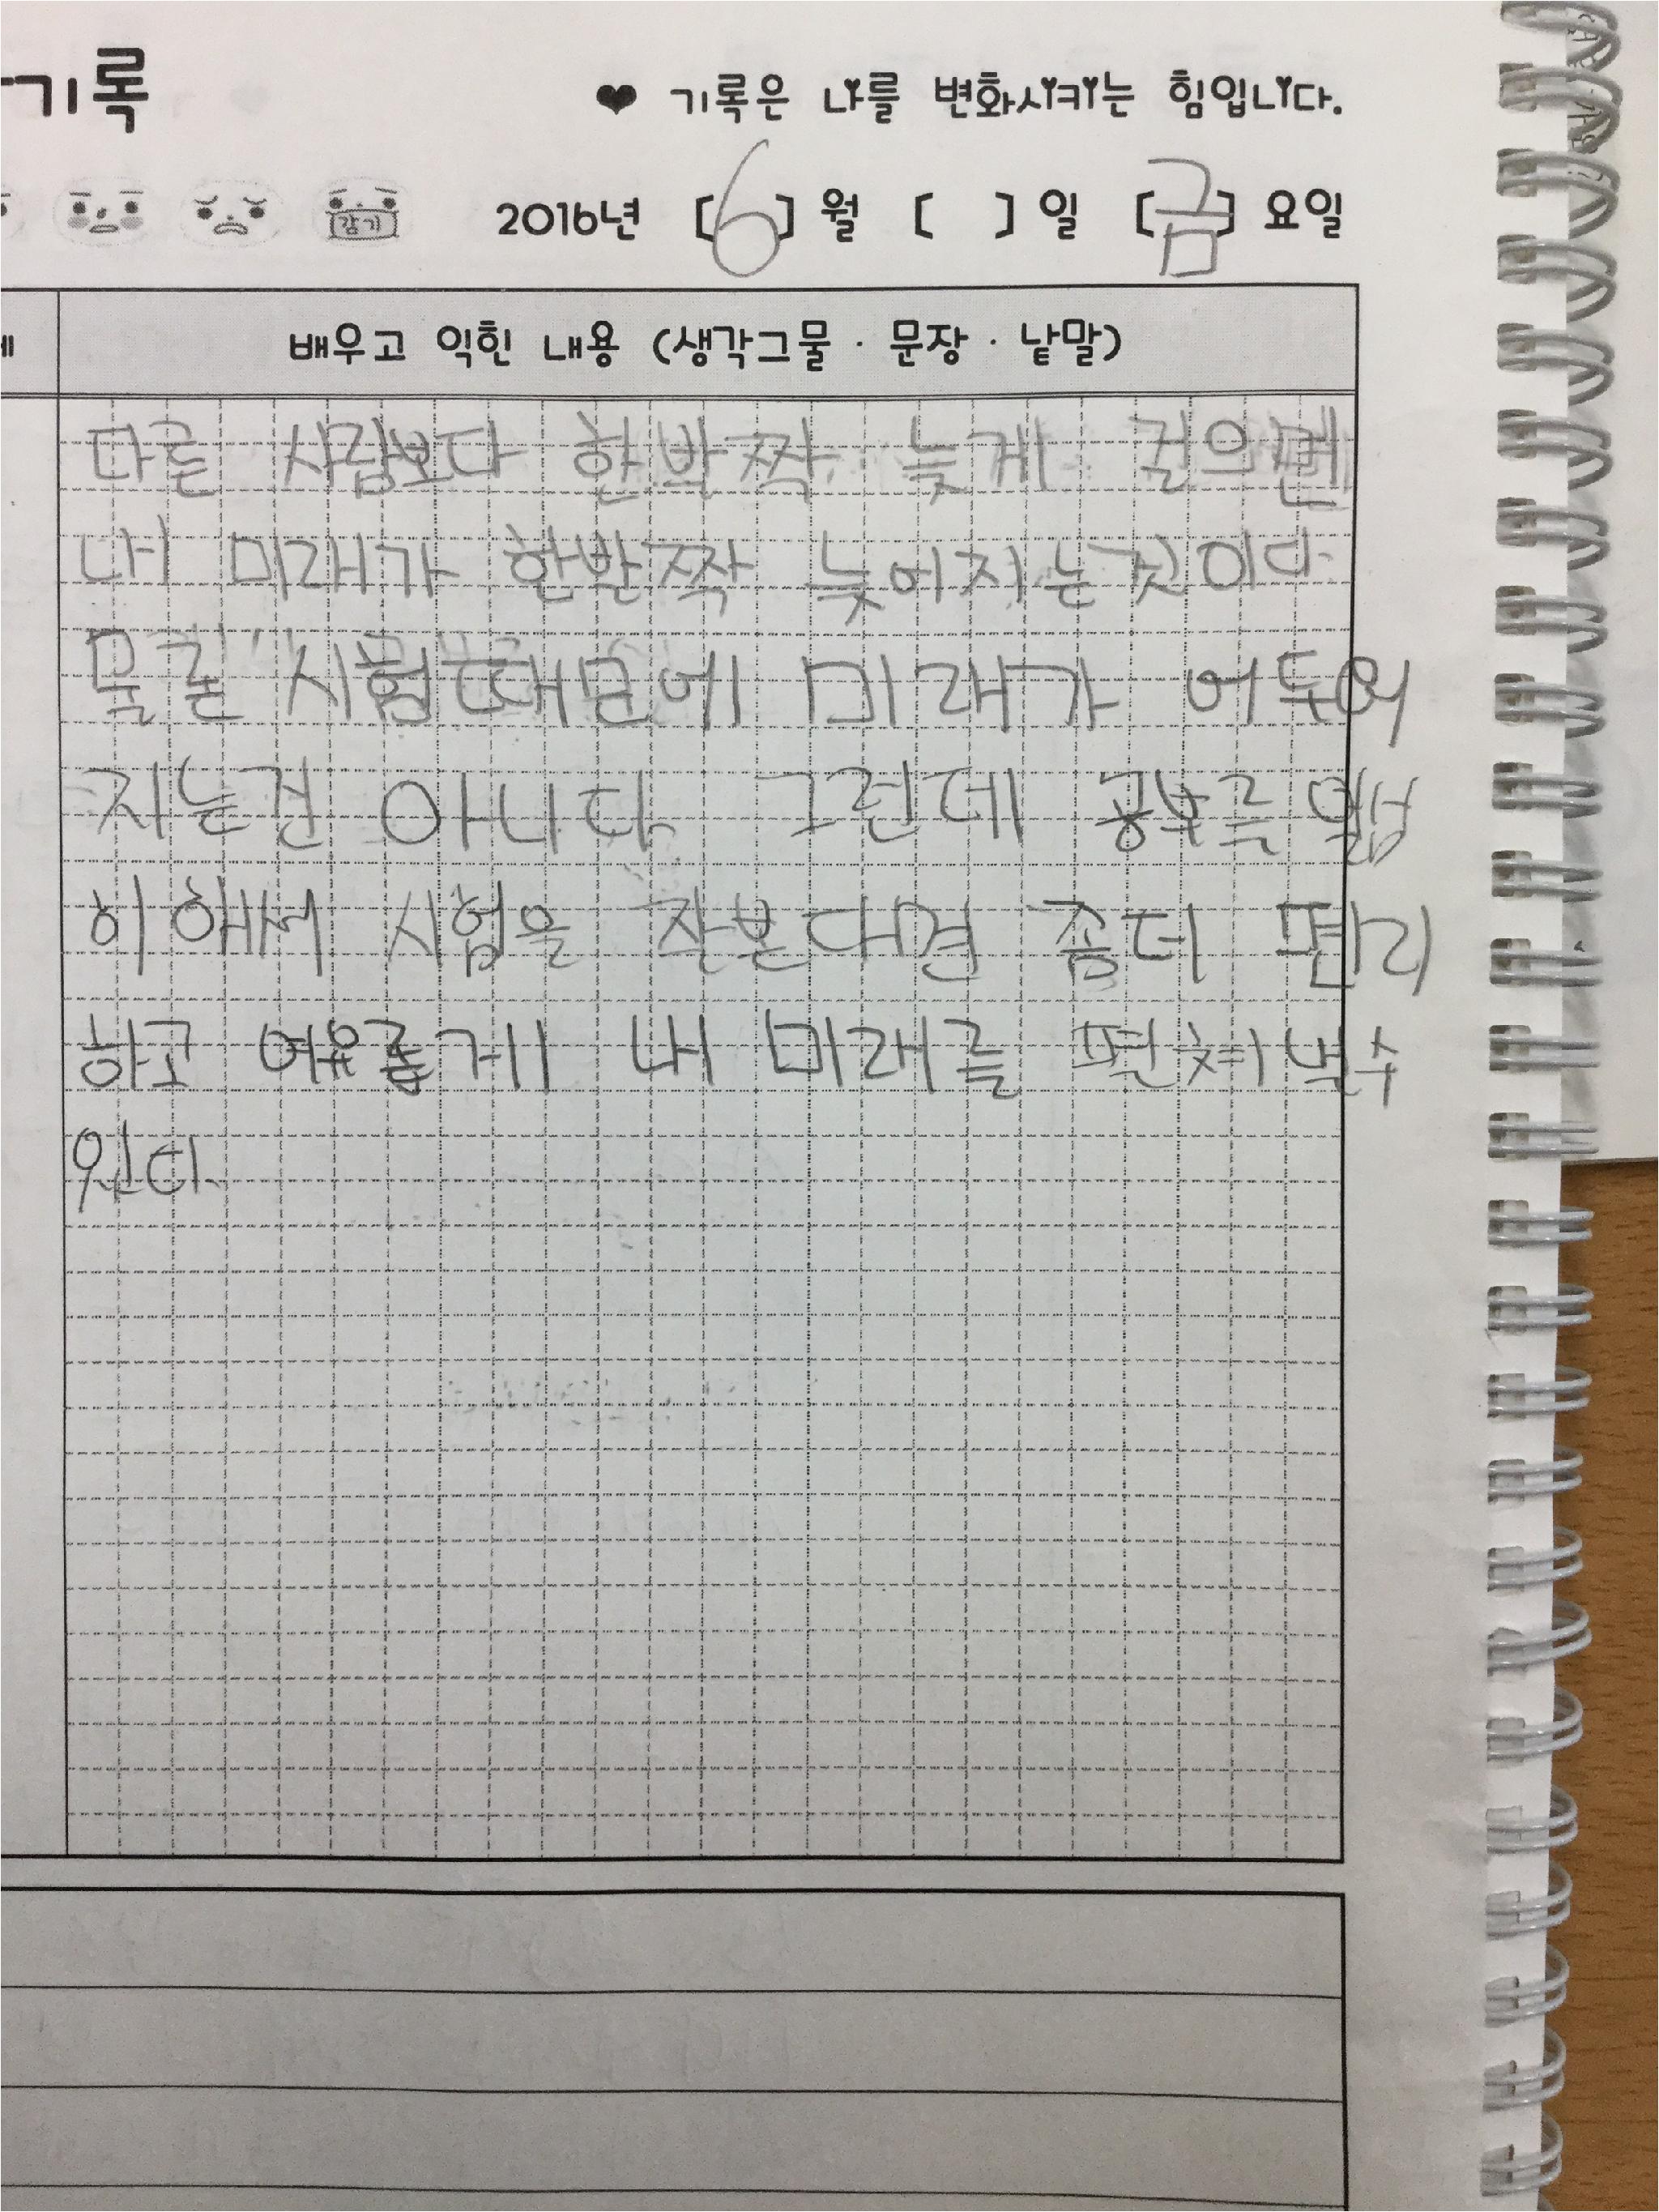 기록
♥ 기록은 나를 변화시키는 힘입니다.
감기
2016년 [6]월 [ ]일 [금]요일
배우고 익힌 내용 (생각그물 · 문장 · 낱말)
다른 사람보다 한발짝 늦게 걸으면
내 미래가 한발짝 늦어지는것이다
물론 시험때문에 미래가 어두워
지는건 아니다. 그런데 공부를 열심
히해서 시험을 잘본다면 좀더 편리
하고 여유롭게 내 미래를 펼쳐낼수
있다.